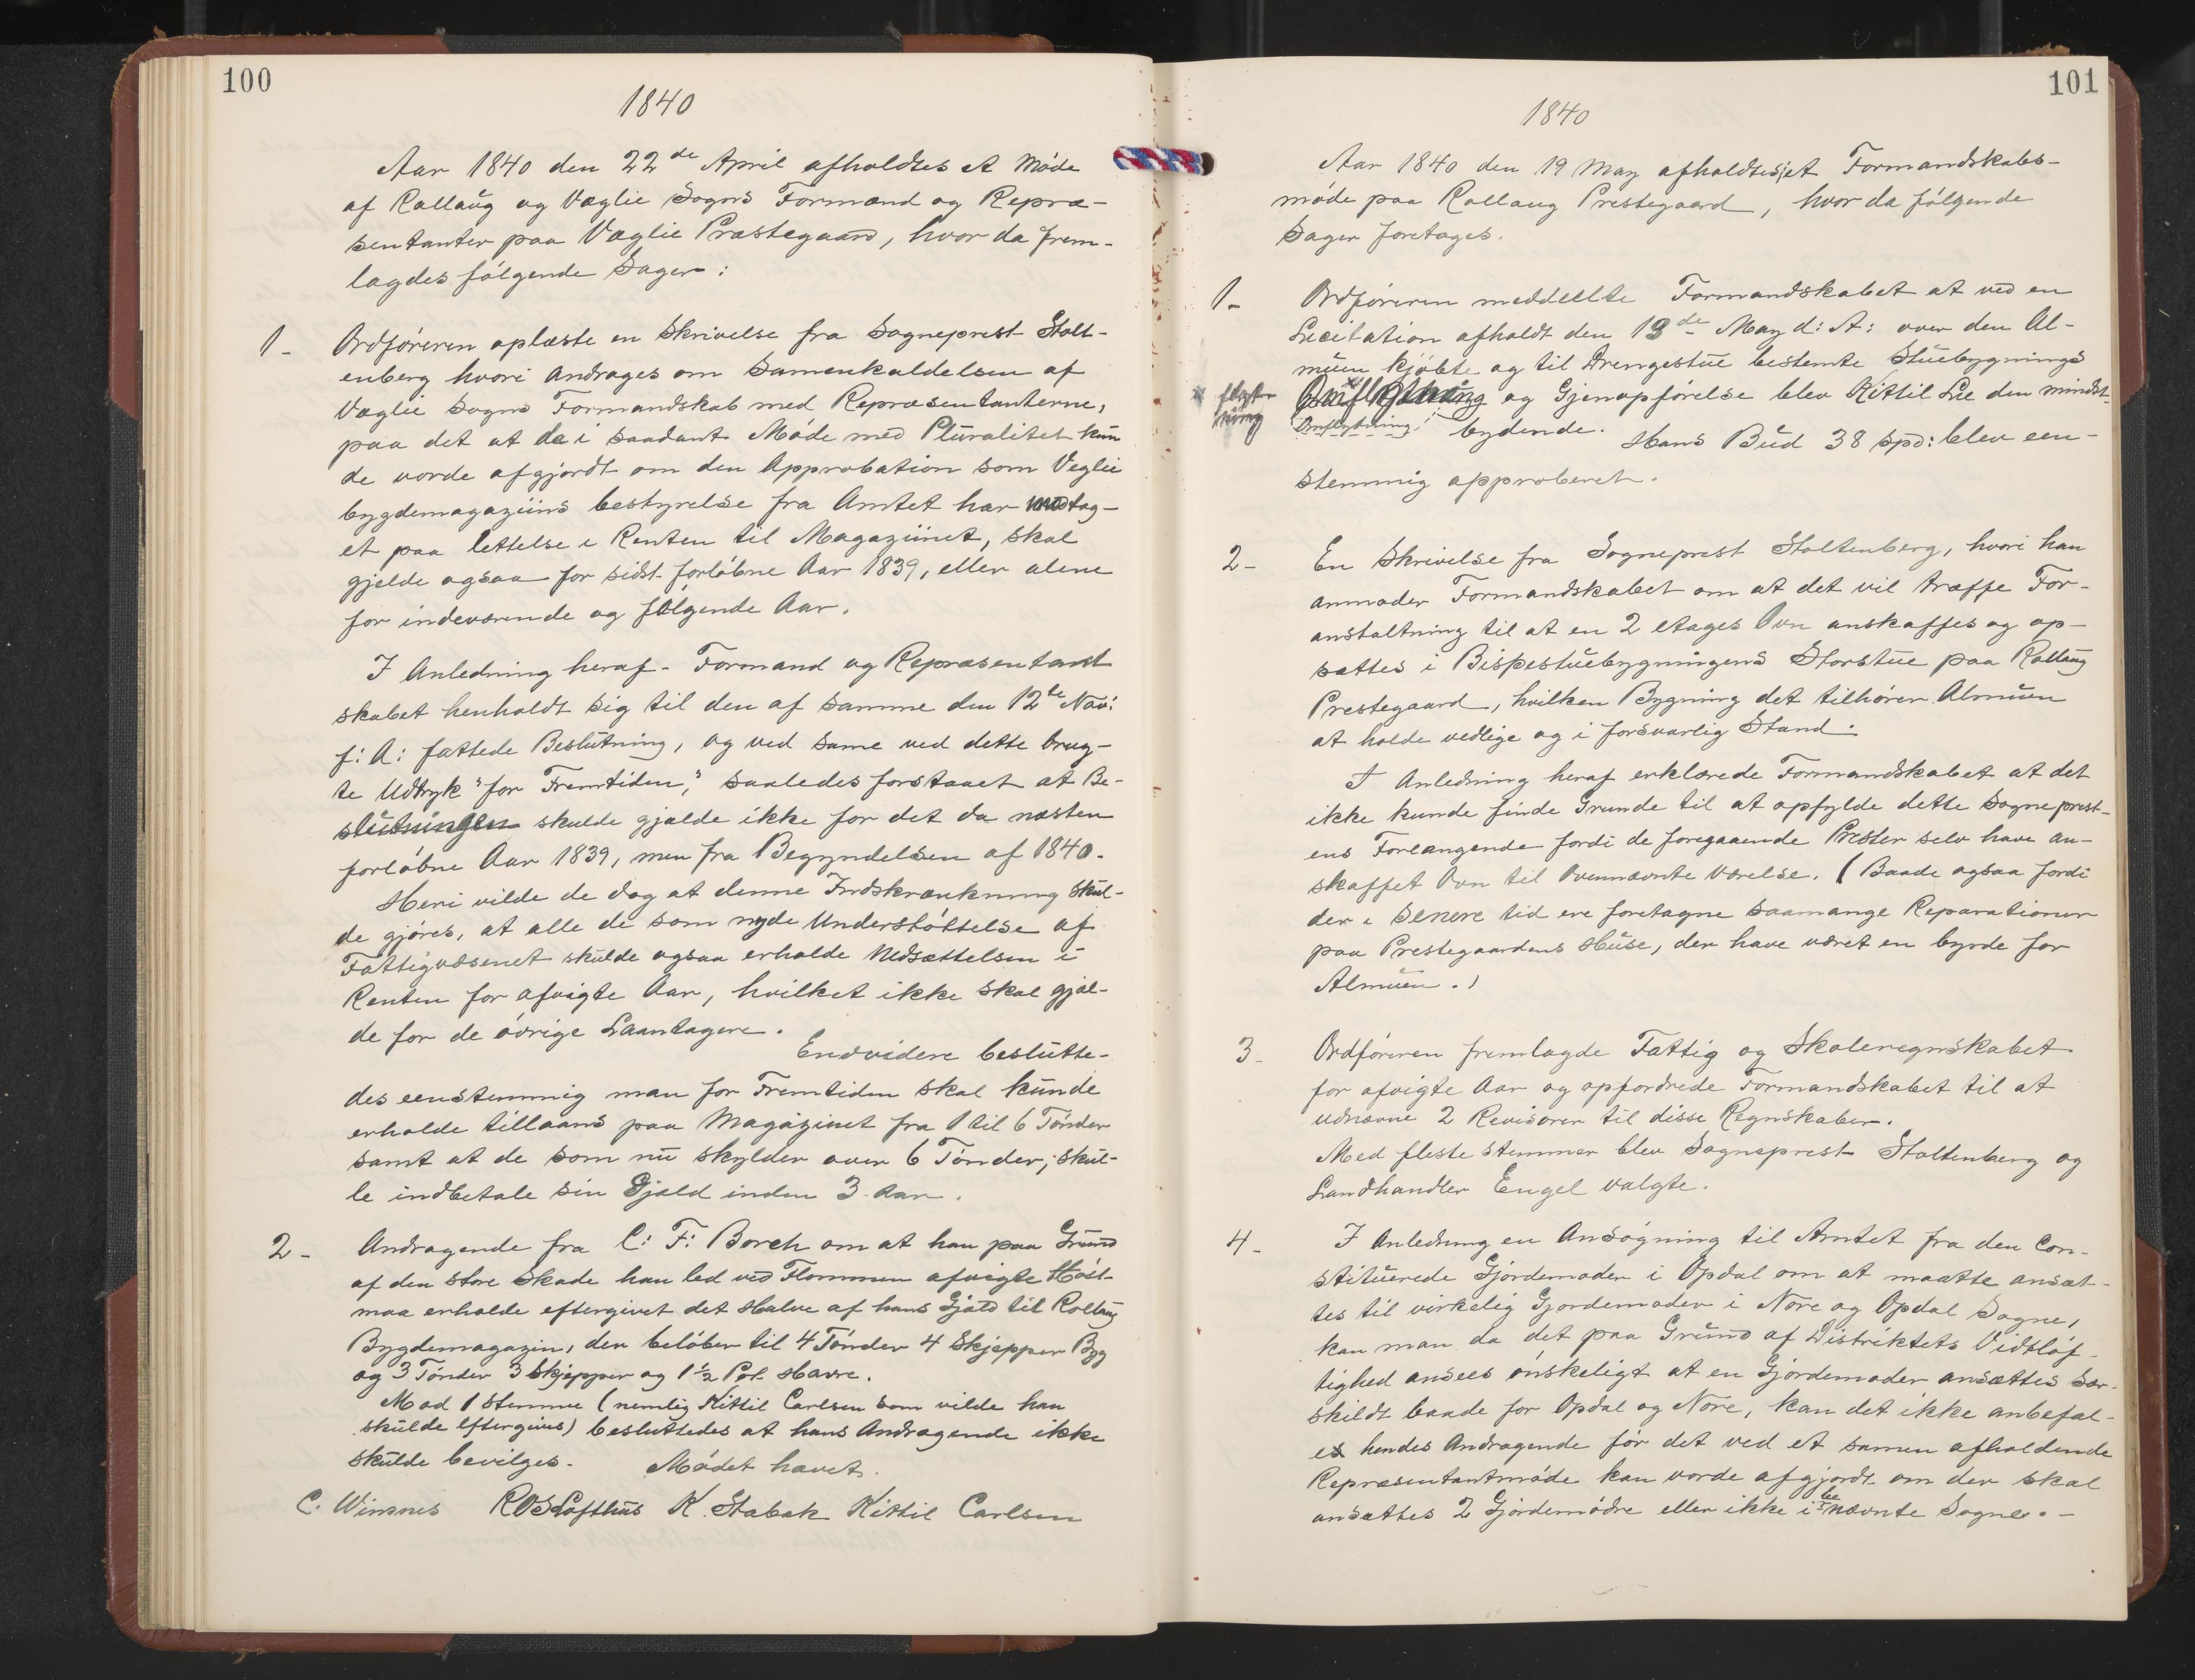 100
1840
Aar 1840 den 22de April afholdtes et Møde
af Rollaug og Væglie Sogns Formænd og Repræ-
sentanter paa Væglie Præstegaard, hvor da frem-
lagdes følgende Sager:
1- Ordføreren oplæste en Skrivelse fra Sogneprest Stolt-
enberg hvori Andrages om Samenkaldelsen af
Væglie Sogns Formandskab med Repræsentanterne,
paa det at de i saadant Møde med Pluralitet kun
de vorde afgjordt om den Approbation som Veglie
bygdemagaziins bestyrelse fra Amtet har modtag-
et paa lettelse i Renten til Magaziinet, skal
gjelde ogsaa for sidst forløbne Aar 1839, eller alene
for indeværende og følgende Aar.
I Anledning heraf - Formand og Repræsentant
skabet henholdt sig til den af samme den 12te Nov:
f: A: fattede Beslutning, og ved same ved dette brug-
te Udtryk "for Fremtiden," saaledes forstaaet at Be-
slutningen skulde gjælde ikke for det da næsten
forløbne Aar 1839, men fra Begyndelsen af 1840.
Heri vilde de dog at denne Indskrænkning skul-
de gjøres, at alle de som nyde Understøttelse af
Fattigvæsenet skulde ogsaa erholde Nedsættelsen i
Renten for afvigte Aar, hvilket ikke skal gjæl-
de for de øvrige Laantagere.
Endvidere beslutte-
des eenstemmig man for Fremtiden skal kunde
erholde tillaans paa Magazinet fra 1 til 6 Tønder
samt at de som nu skylder over 6 Tønder, skul-
le indbetale sin Gjæld inden 3 Aar.
2- Andragende fra C: F: Borch om at han paa Grund
af den store Skade han led ved Flommen afvigte Høst
maa erholde eftergivet det Halve af hans Gjæld til Rollaug
Bygdemagazin, der beløber til 4 Tønder 4 Skjepper Byg
og 3 Tønder 3 Skjepper og 1 ½ Pot. Havre.
Mod 1 Stemme (nemlig Kittil Carlsen som vilde han
skulde eftergives) besluttedes at hans Andragende ikke
skulde bevilges. Mødet hævet.
C. Winsnes Lofthus K. Stabæk Kittil Carlsen
101
1840
Aar 1840 den 19 May afholdtes et Formandskabs-
møde paa Rollaug Prestegaard, hvor da følgende
Sager foretages.
1- Ordføreren meddeelte Formandskabet at ved en
Licitation afholdt den 13de May d: A: over den Al-
muen kjøbte og til Drengestue bestemte Stuebygnings
* flyt-
ning
Omflytning og Gjenopførelse blev Kittil Lie den mindst
Omflytning! bydende. Hans Bud 38 Spd: blev een-
stemmig approberet.
2- En Skrivelse fra Sogneprest Stoltenberg, hvori han
anmoder Formandskabet om at det vil træffe For-
anstaltning til at en 2 Etages Ovn anskaffes og op-
sættes i Bispestuebygningens Storstue paa Rollaug
Prestegaard, hvilken Bygning det tilhører Almuen
at holde vedlige og i forsvarlig Stand.
I Anledning heraf erklærede Formandskabet at det
ikke kunde finde Grunde til at opfylde dette Sogneprest-
ens Forlangende fordi de foregaaende Prester selv have an-
skaffet Ovn til Ovennævnte Værelse. (Baade ogsaa fordi
der i senere tid ere foretagne saamange Reparationer
paa Prestegaardens Huse, der have været en byrde for
Almuen.)
3- Ordføreren fremlagde Fattig og Skoleregnskabet
for afvigte Aar og opfordrede Formandskabet til at
udnævne 2 Revisorer til disse Regnskaber.
Med fleste Stemmer blev Sogneprest Stoltenberg og
Landhandler Engel valgte.
4- I Anledning en Ansøgning til Amtet fra den Con-
stituerede Gjordemoder i Opdal om at maatte ansæt-
tes til virkelig Gjordemoder i Nore og Opdal Sogne,
kan man da det paa Grund af Distriktets Vidtløf-
tighed ansees ønskeligt at en Gjordemoder ansættes sær-
skildt baade for Opdal og Nore, kan det ikke anbefal-
es hendes Andragende før det ved et samen afholdende
Repræsentantmøde kan vorde afgjordt om der skal
ansættes 2 Gjordemødre eller ikke i benævnte Sogne. -